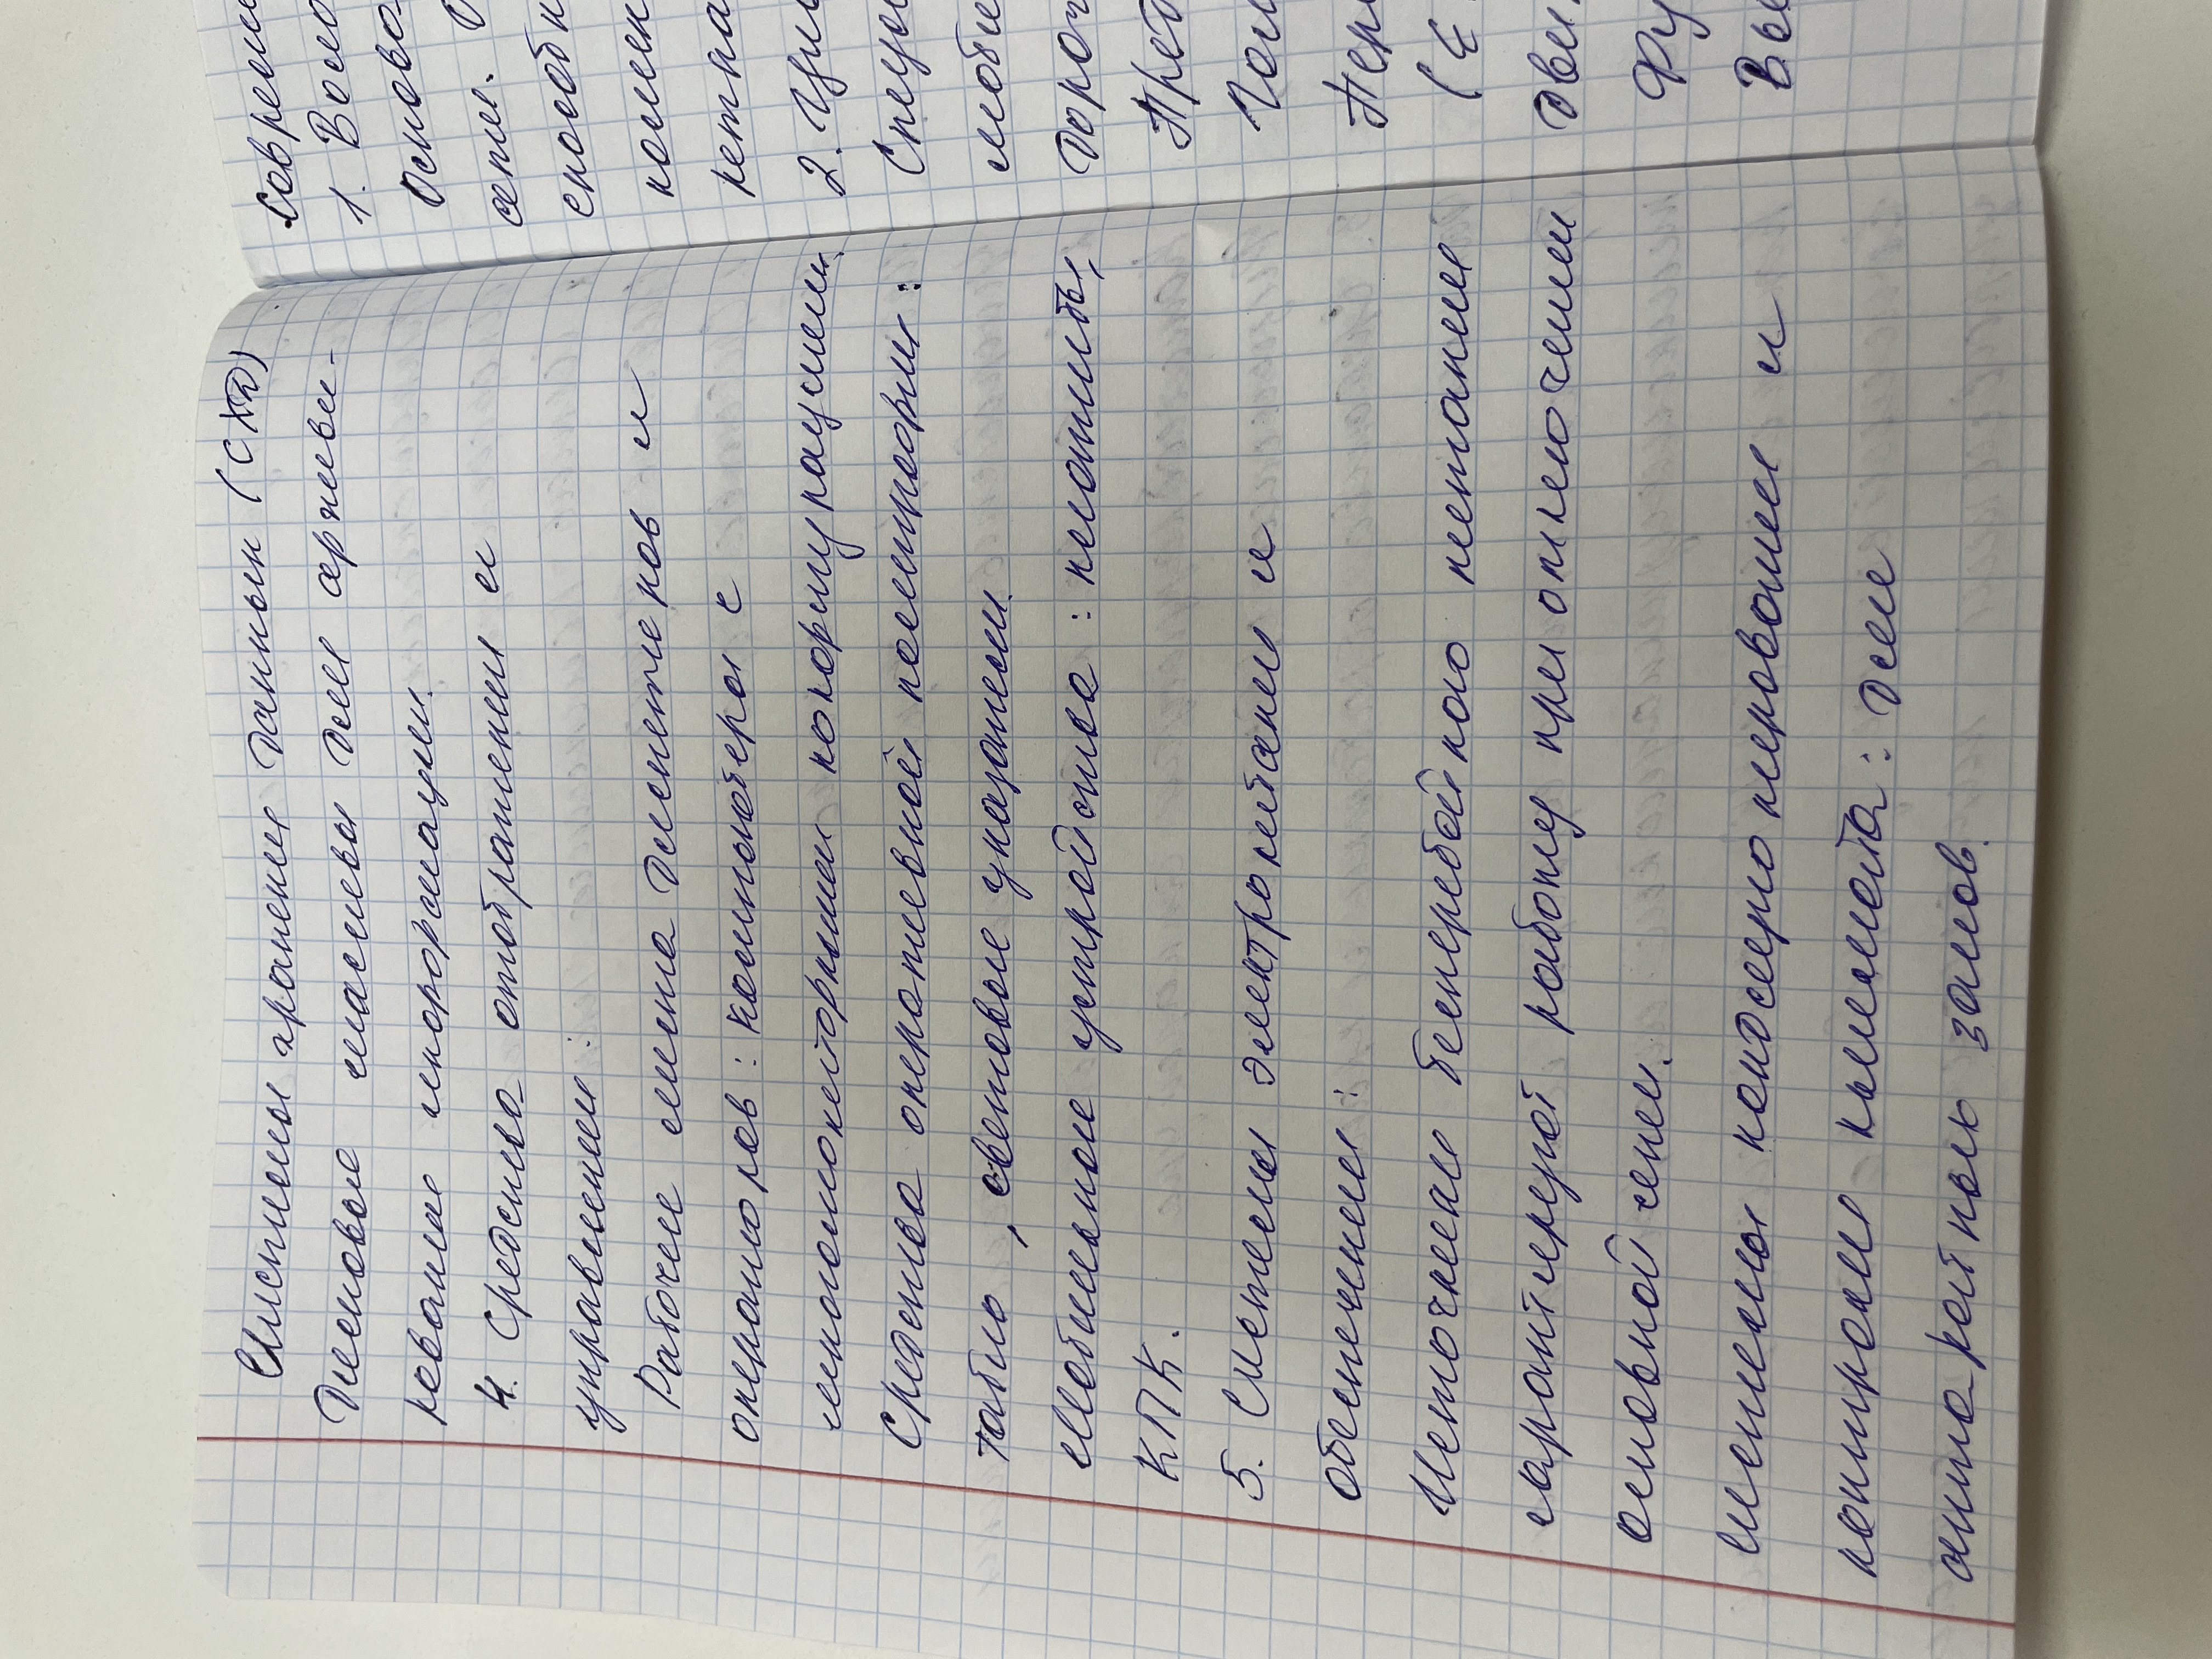 Системы хранения данных (СХД)
Дисковые массивы для архиви-
рования информации.
4. Средства отображения и
управления:
Рабочие места диспетчеров и
операторов: компьютеры с
многомониторными конфигурациями
Средства оперативной полиграфии:
табло, световые указатели.
Мобильные устройства: планшеты,
КПК.
5. Системы электропитания и
обеспечения:
Источники бесперебойного питания
гарантируют работу при отключении
основной сети.
Системы кондиционирования и
контроля климата: для
аппаратных залов.
Соврем
1. Воло
Основа
сети.
способн
2.
Спу
моби
Дороч